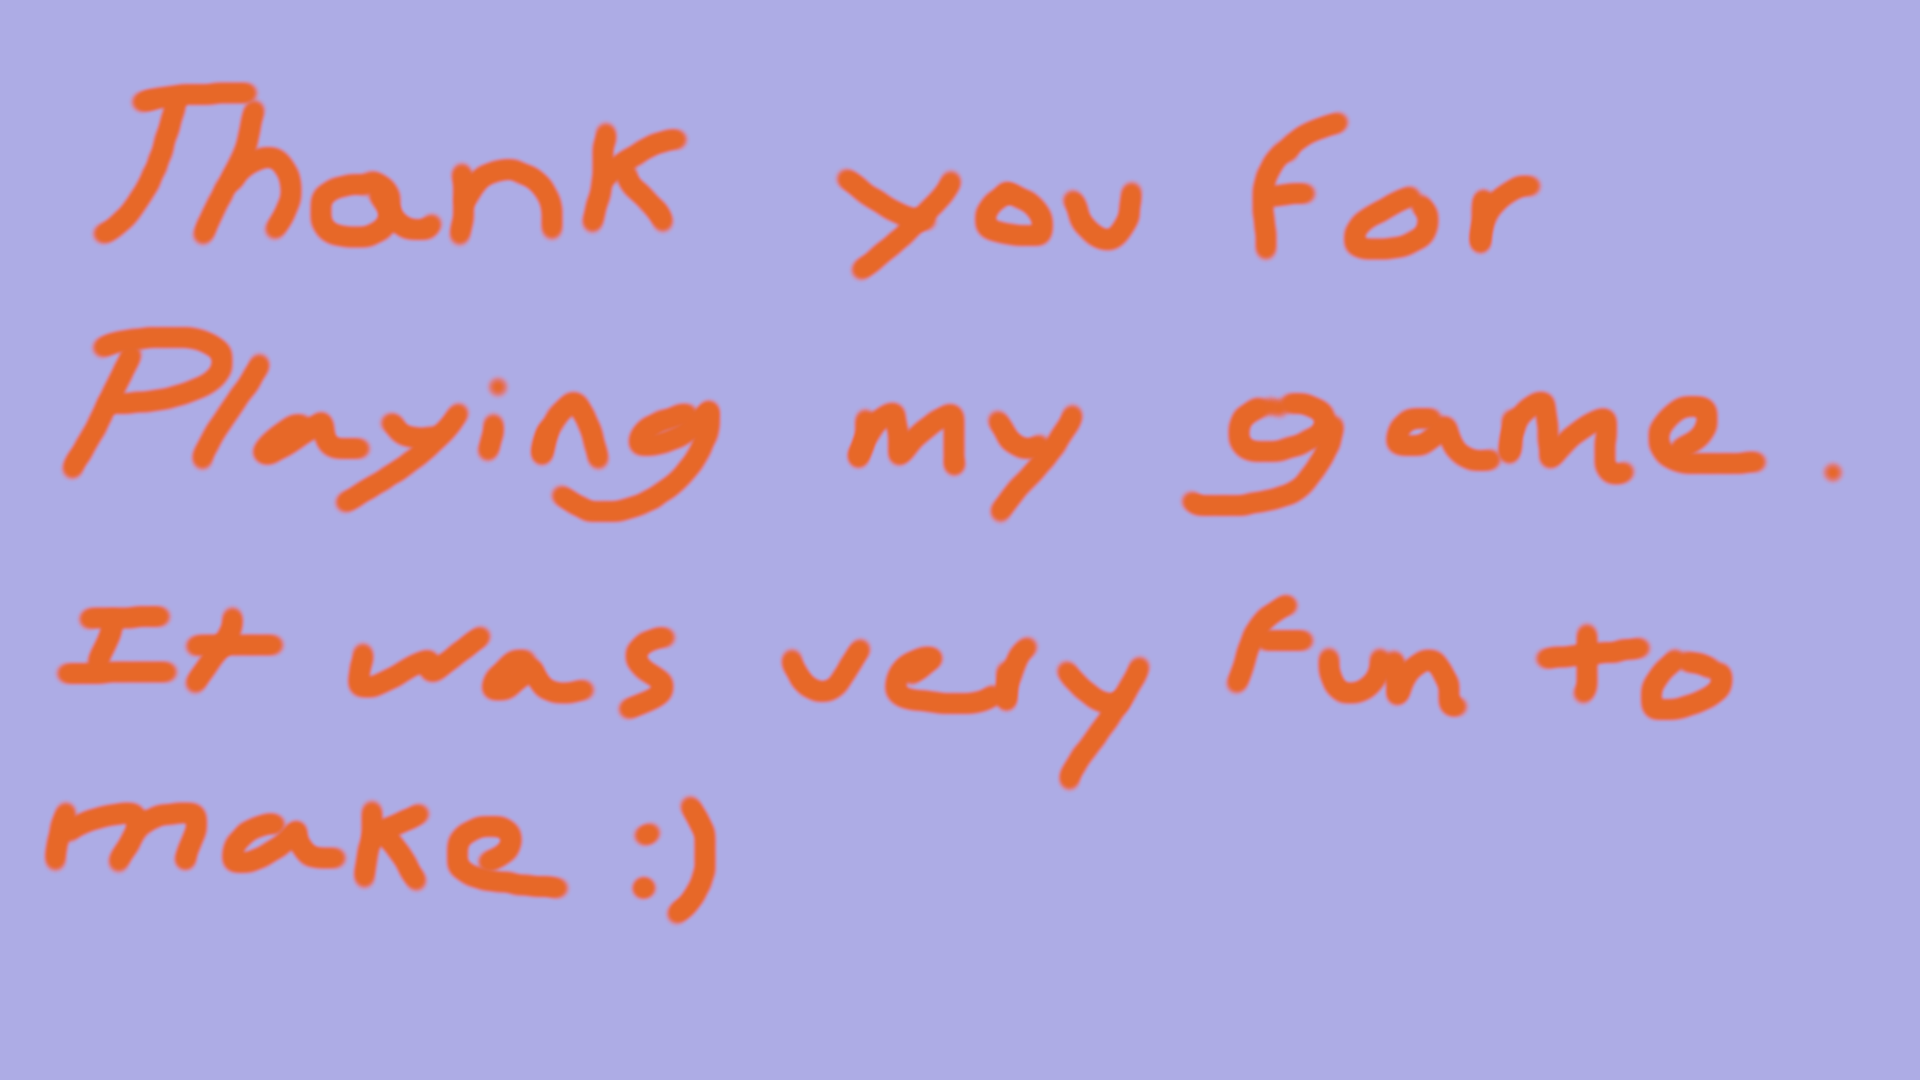 Thank you for
Playing my game.
It was very fun to
make :)